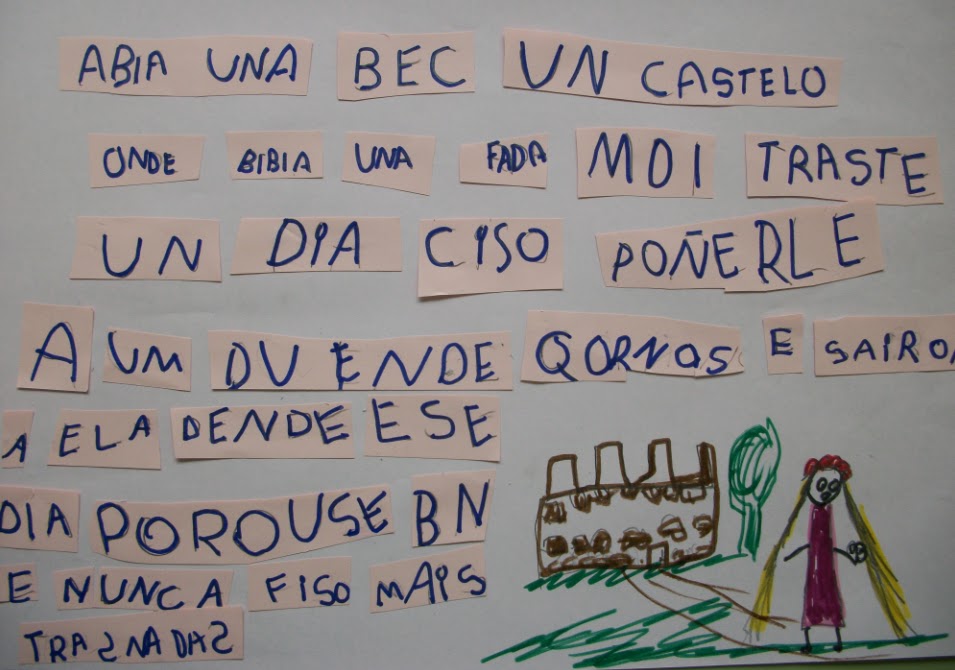 ABIA UNA BEC UN CASTELO
ONDE BIBIA UNA FADA MOI TRASTE
UN DIA CISO POÑERLE
A UM DUENDE QORNOS E SAIRO
A ELA DENDE ESE
DIA POROUSE BN
E NUNCA FISO MAIS
TRASNADAS